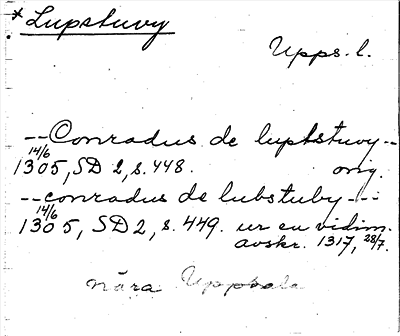 * Lupstuvy
Upps. l.
-- Conradus de luptstuvy --
14/6 1305, SD 2, s. 448. orig.
-- conradus de lubstuby ---
14/6 1305, SD 2, s. 449. ur en vidim.
avskr. 1317, 28/7.
nära Uppsala